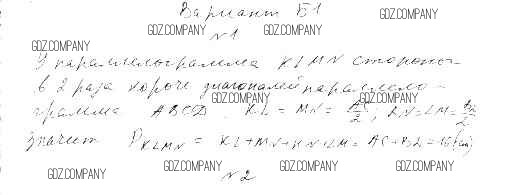 Вариант Б1
GDZ.COMPANY
GDZ.COMPANY GDZ.COMPANY
№1
GDZ.COMPANY
У параллелограмма KLMN стороны
в 2 раза короче диагоналей параллело-
GDZ.COMPANY GDZ.COMPANY
грамма ABCD. KL = MN = AC/2, KN = LM = BD/2
значит P KLMN = KL + MN + KN + LM = AC + BD = 16 (см)
GDZ.COMPANY GDZ.COMPANY GDZ.COMPANY GDZ.COMPANY
№2